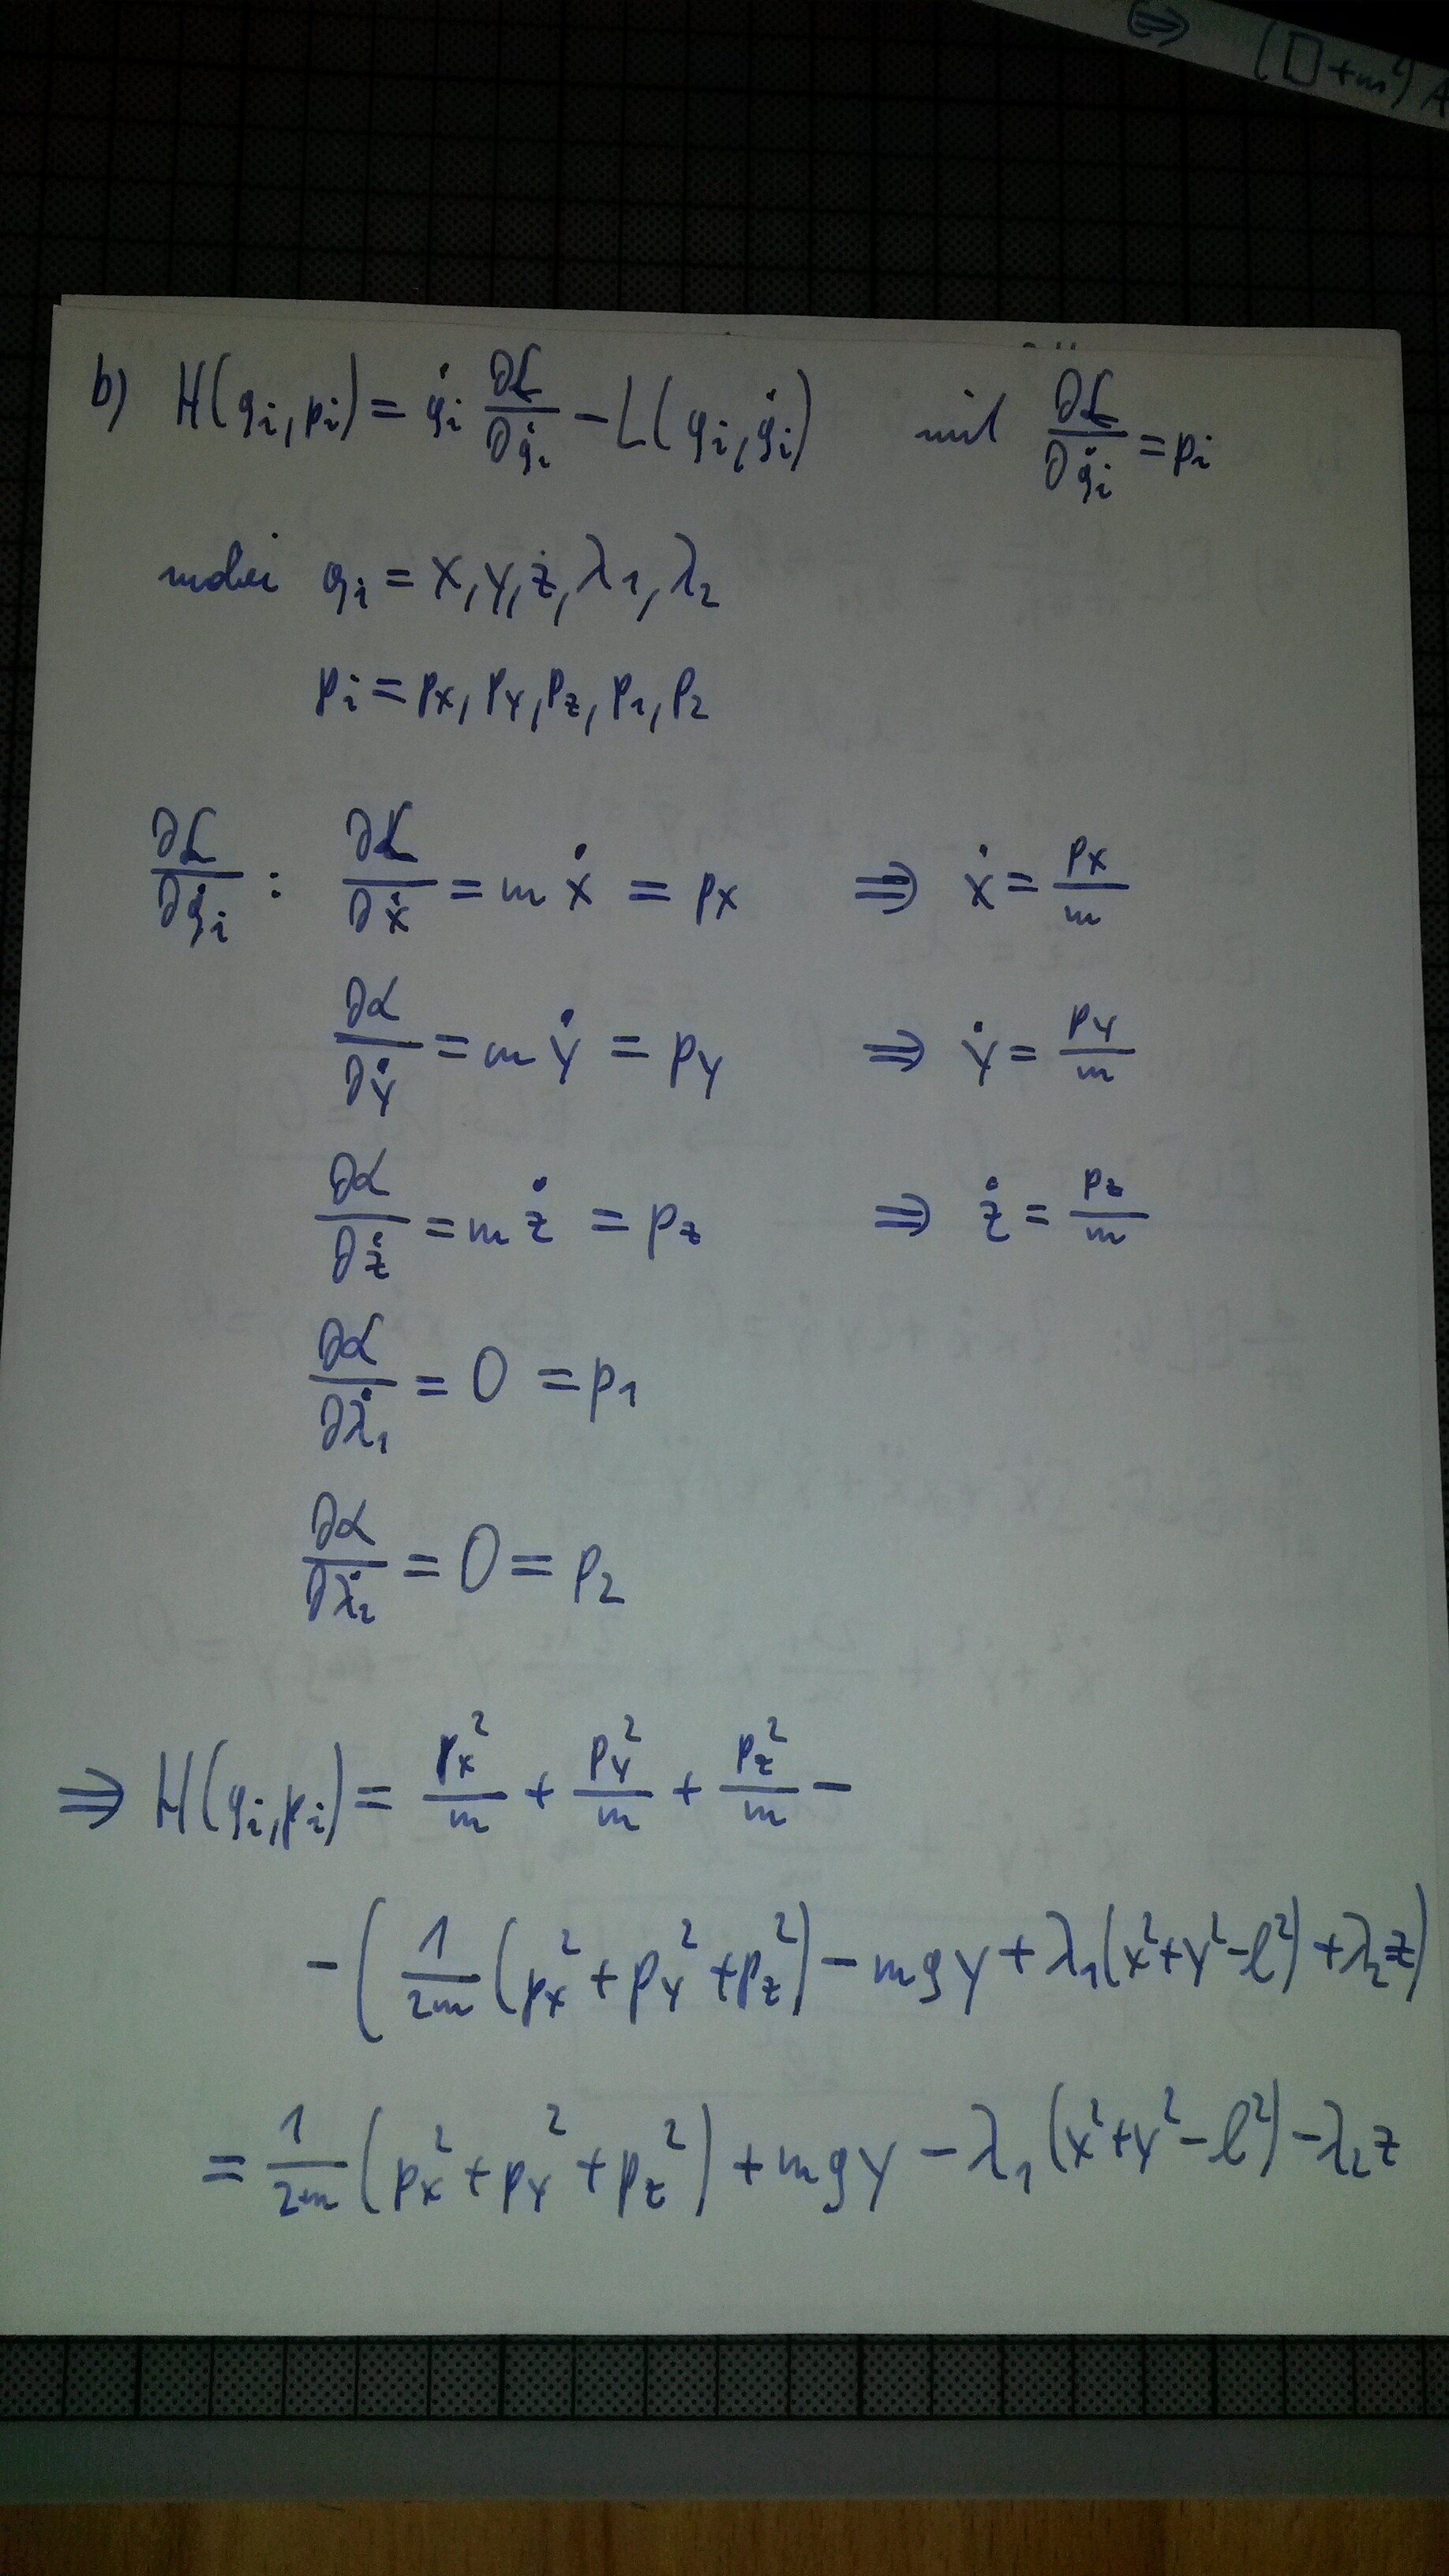 ⇔ (□+m²) A
b) H(qi, pi) = q̇i ∂L/∂q̇i − L(qi, q̇i) mit ∂L/∂q̇i = pi
wobei qi = x, y, z, λ1, λ2
pi = px, py, pz, p1, p2
∂L/∂q̇i : ∂L/∂ẋ = m ẋ = px ⇒ ẋ = px/m
∂L/∂ẏ = m ẏ = py ⇒ ẏ = py/m
∂L/∂ż = m ż = pz ⇒ ż = pz/m
∂L/∂λ̇1 = 0 = p1
∂L/∂λ̇2 = 0 = p2
⇒ H(qi, pi) = px²/m + py²/m + pz²/m −
− (1/2m (px² + py² + pz²) − mgy + λ1(x²+y²−l²) + λ2z)
= 1/2m (px² + py² + pz²) + mgy − λ1(x²+y²−l²) − λ2z